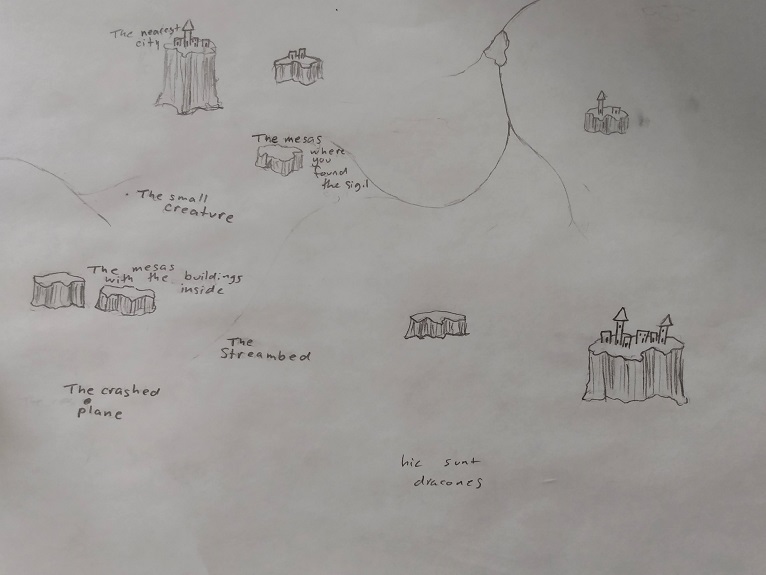 The nearest
city
The mesas
where
you
found
the sigil
The small
creature
The mesas
with the buildings
inside
The
Streambed
The crashed
plane
hic sunt
dracones